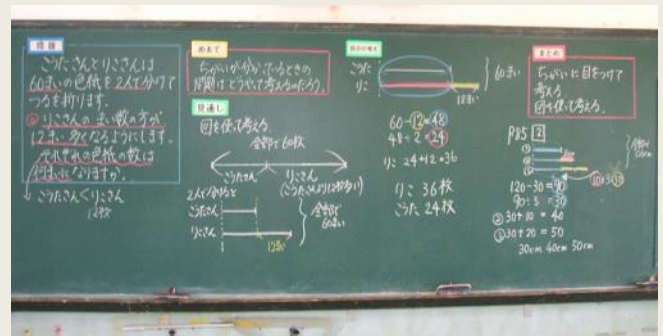 問題
こうたさんとりこさんは
60まいの色紙を2人で分けて
つるを折ります。
りこさんのまい数の方が
12まい多くなるようにします。
それぞれの色紙の数は
何まいになりますか。
こうたさん<りこさん
12枚
めあて
ちがいが分かっているときの
問題はどうやって考えるのだろう。
見通し
図を使って考える
全部で60枚
こうたさん りこさん
(こうたさんより12枚多い)
2人で分けると
こうたさん
りこさん
12まい
全部で
60まい
自分の考え
こうた
りこ
60まい
12まい
60-12=48
48÷2=24
りこ 24+12=36
りこ 36枚
こうた 24枚
まとめ
ちがいに目をつけて
考える
図を使って考える。
P85 2
①
②
③
全部で
120cm
10×3=30
120-30=90
90÷3=30
②30+10=40
③30+20=50
30cm 40cm 50cm